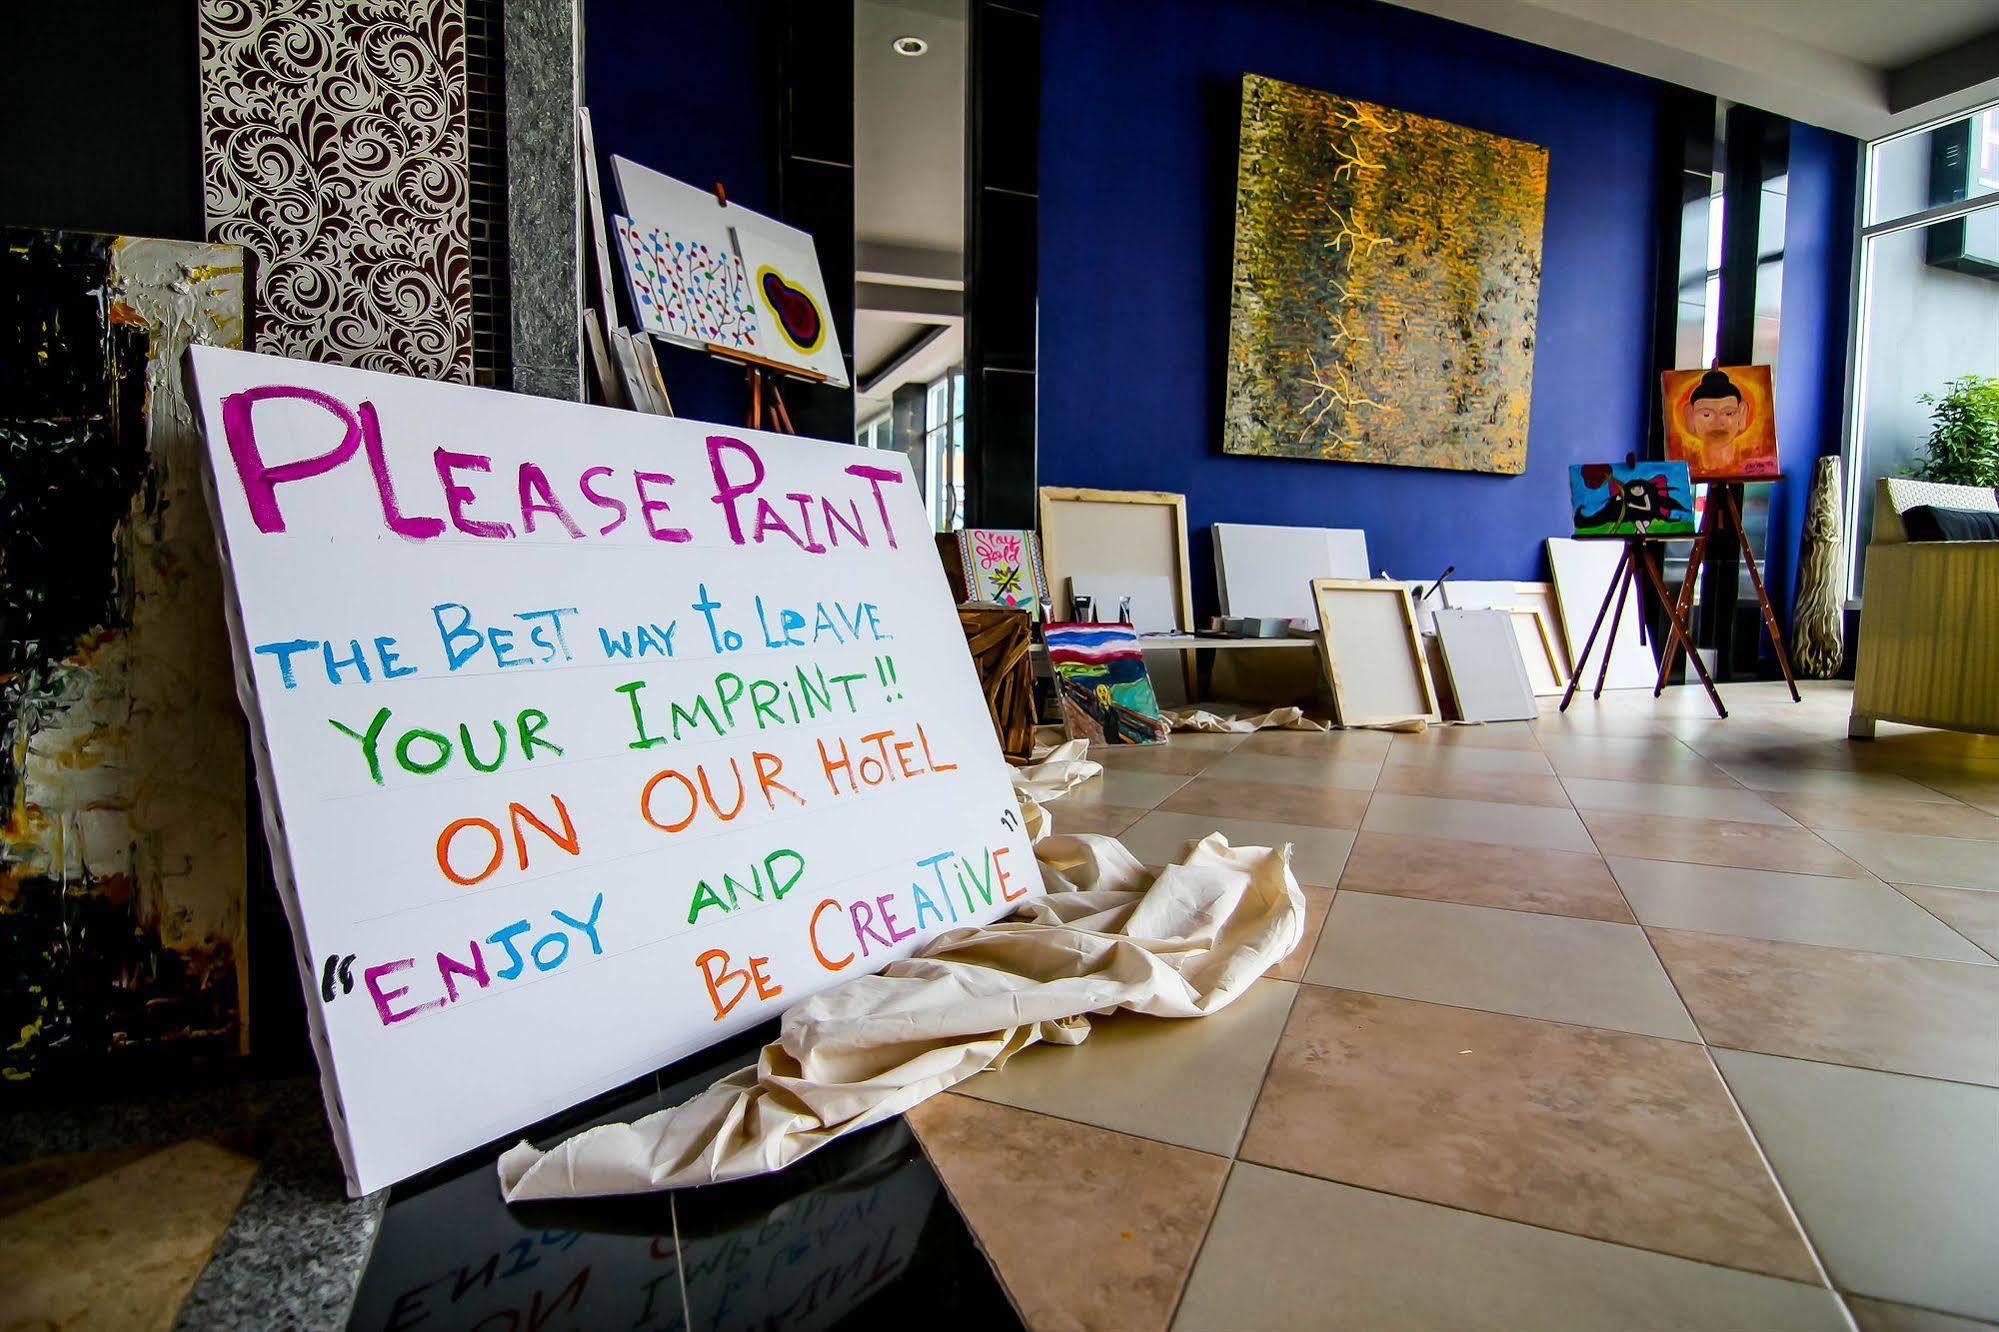 PLEASE PAINT
THE BEST WAY to LEAVE
YOUR IMPRiNT!!
ON OUR HOTEL
"ENJOY AND
BE CREATiVE"
Stay
Gold